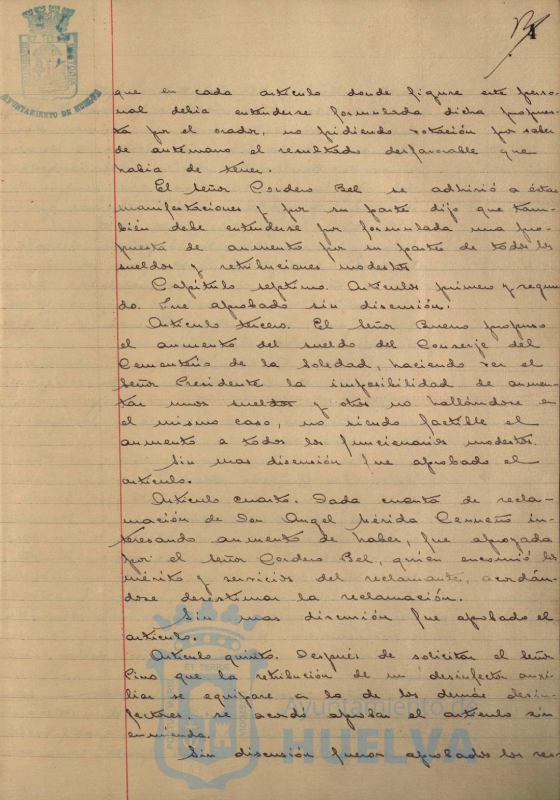 AYUNTAMIENTO DE HUELVA
que en cada artículo donde figure este perso-
nal debia entenderse formulada dicha propues-
ta por el orador, no pidiendo votación por saber
de antemano el resultado desfavorable que
habia de tener.
El Señor Cordero Bel se adhirió a éstas
manifestaciones y por su parte dijo que tam-
bién debe entenderse por formulada una pro-
puesta de aumento por su parte de todos los
sueldos y retribuciones modestos
Capítulo septimo. Artículos primero y segun-
do. Fue aprobado sin discusión.
Artículo tercero. El Señor Bueno propuso
el aumento del sueldo del Conserje del
Cementerio de la Soledad, haciendo ver el
Señor Presidente la imposibilidad de aumen-
tar unos sueldos y otros no hallándose en
el mismo caso, no siendo factible el
aumento a todos los funcionarios modestos.
Sin mas discusión fue aprobado el
artículo.
Artículo cuarto. Dada cuenta de recla-
mación de Don Angel Mérida in-
teresando aumento de haber, fue apoyada
por el Señor Cordero Bel, quien encomió los
méritos y servicios del reclamante, acordán-
dose desestimar la reclamación.
Sin mas discusión fue aprobado el
artículo.
Artículo quinto. Después de solicitar el Señor
Pino que la retribución de un desinfector auxi-
liar se equipare a la de los demás desin-
fectores, se acordó aprobar el artículo sin
enmienda.
Sin discusión fueron aprobados los res-
Ayuntamiento de
HUELVA